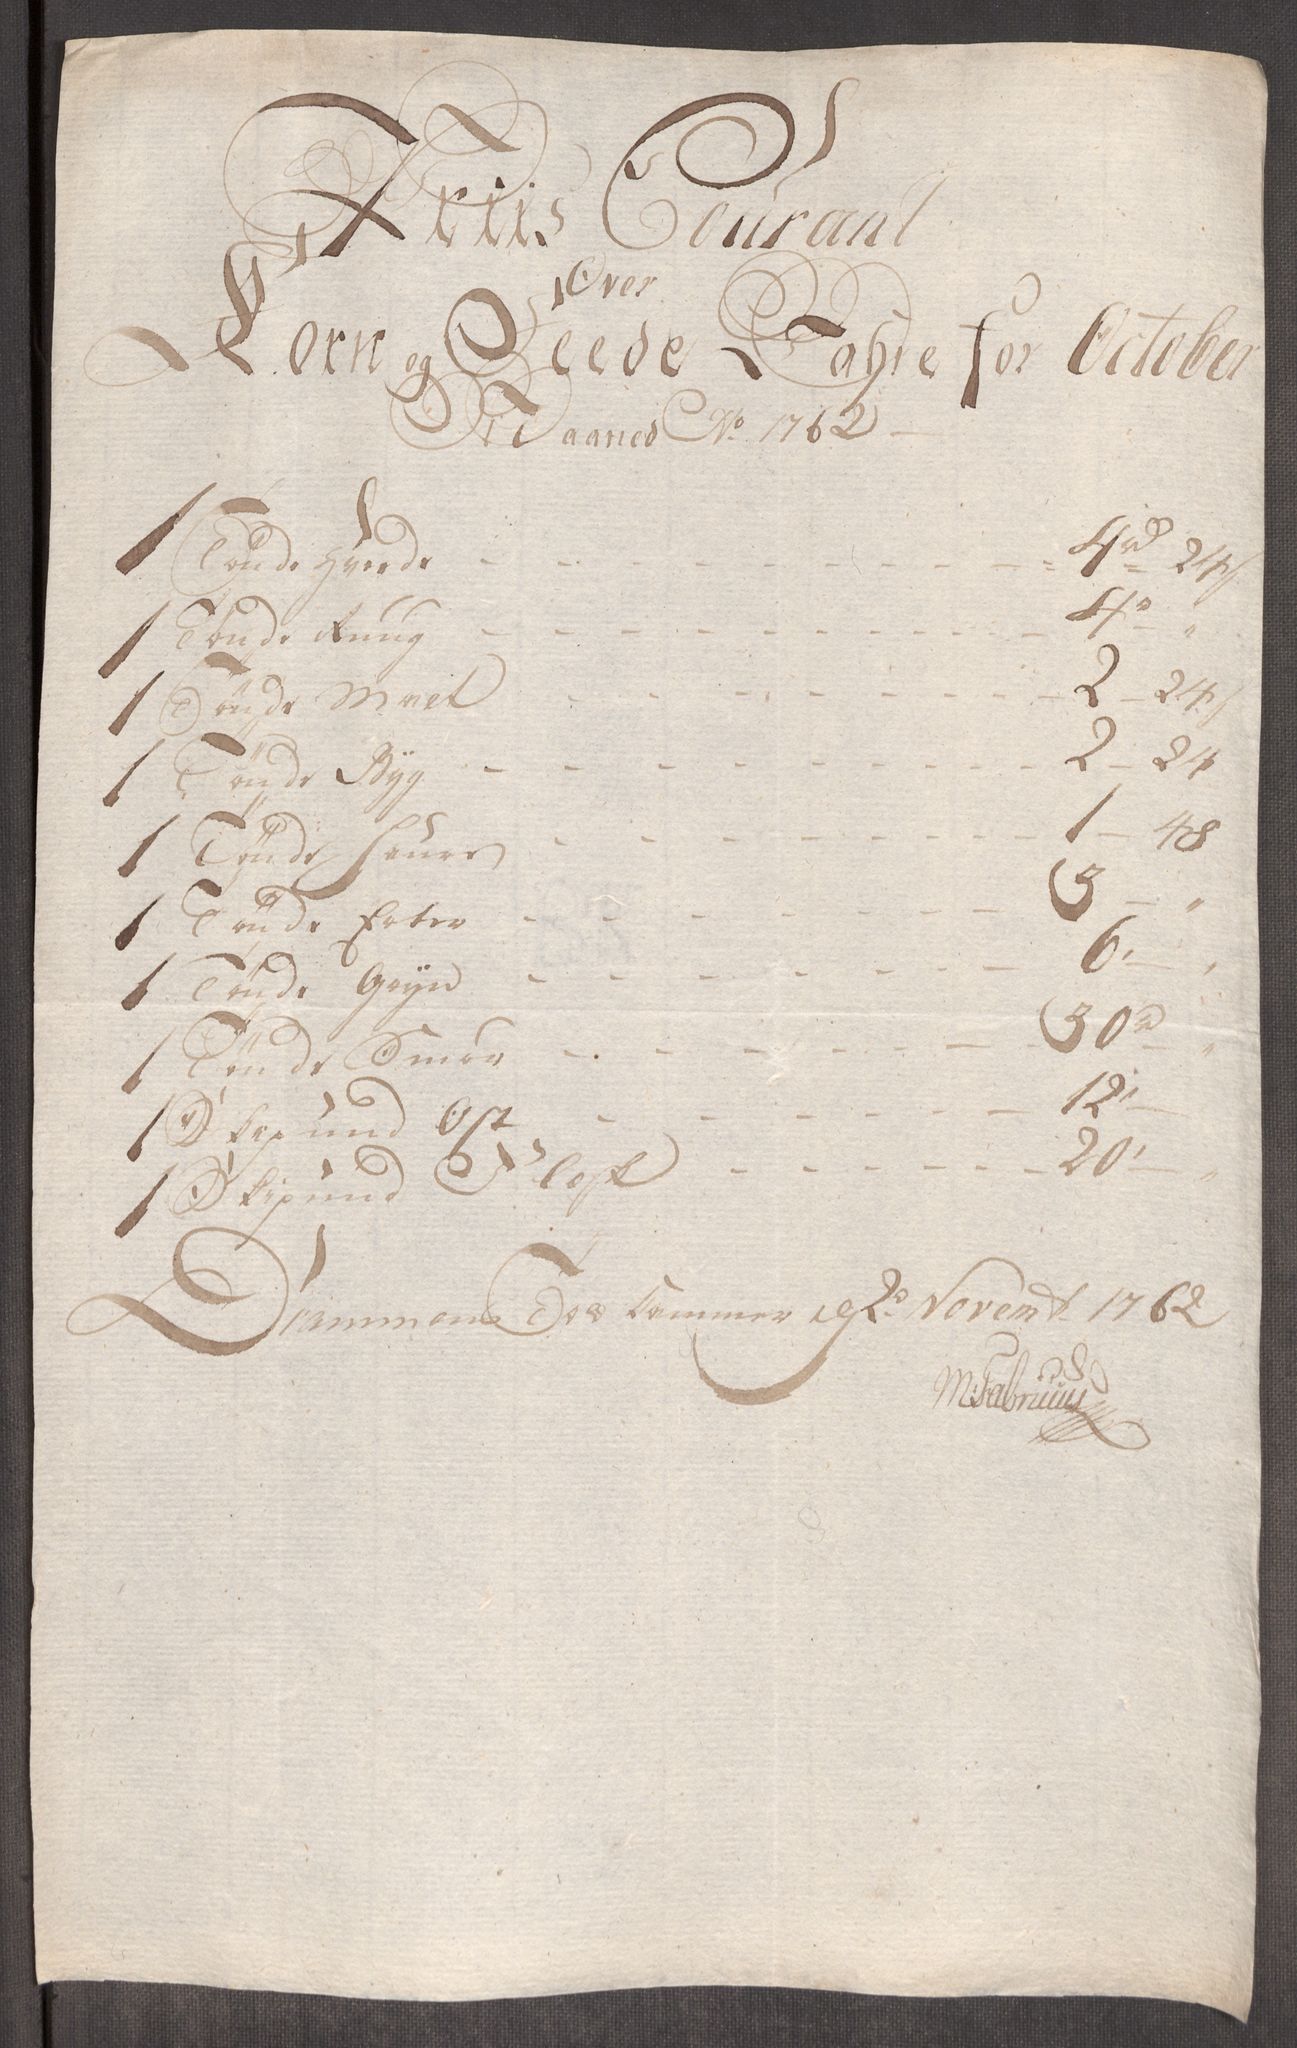 Priis Courant
Over
Korn og Feede Vahre for October
Maaned No. 1762
1 Tönde Hveede - - 4 rd 24 s
1 Tönde Ruug - - 4 - "
1 Tönde Malt - - 2 - 24 s
1 Tönde Byg - - 2 - 24
1 Tönde Haure - - 1 - 48
1 Tönde Erter - - 3 - "
1 Tönde Gryn - - 6 - "
1 Tönde Smör - - 30 - "
1 Skipund Ost - - 12 -
1 Skipund Flesk - - 20 - "
Drammens Told Cammer d 2 Novembr 1762
M: Fabritius